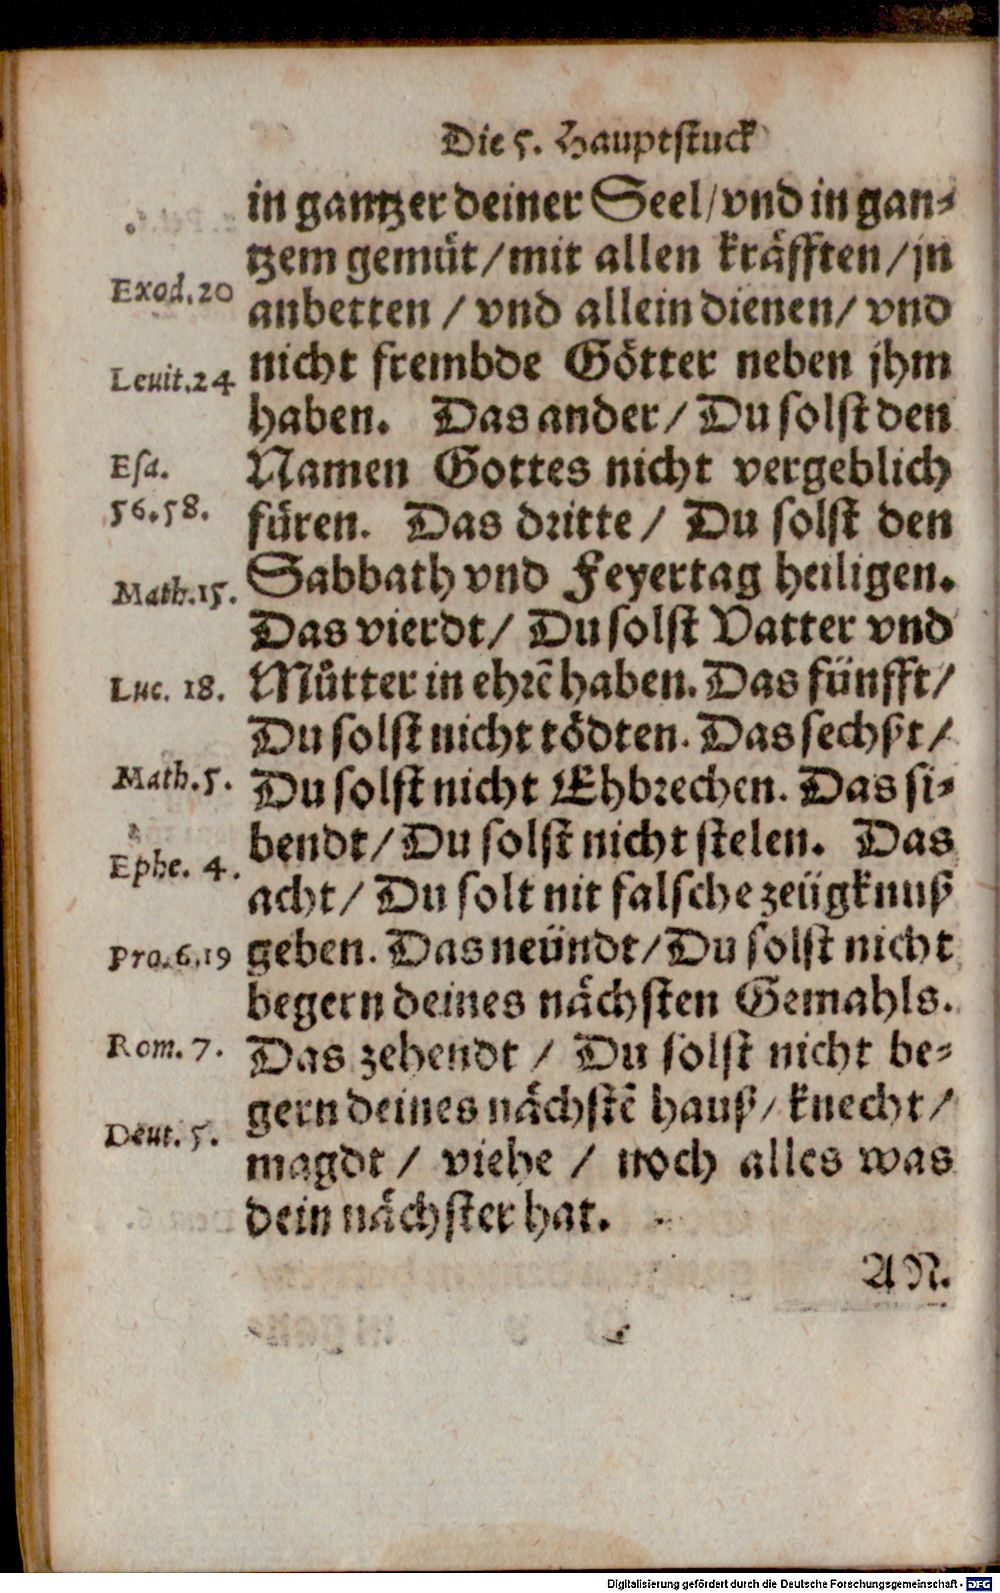 Die 5. Hauptstuck
in gantzer deiner Seel/vnd in gan-
tzem gemüt/mit allen kräfften/jn
Exod.20
anbetten / vnd allein dienen/ vnd
nicht frembde Götter neben jhm
Leuit.24
haben. Das ander/ Du solst den
Esa.
Namen Gottes nicht vergeblich
56.58.
füren. Das dritte / Du solst den
Sabbath vnd Feyertag heiligen.
Math.15.
Das vierdt/ Du solst Vatter vnd
Luc. 18.
Mütter in ehrē haben. Das fünfft/
Du solst nicht tödten. Das sechßt/
Math.5.
Du solst nicht Ehbrechen. Das si-
bendt/Du solst nicht stelen. Das
Ephe. 4.
acht/ Du solt nit falsche zeügknuß
Pro.6.19
geben. Das neündt/Du solst nicht
begern deines nächsten Gemahls.
Rom. 7.
Das zehendt / Du solst nicht be-
gern deines nächstē hauß/ knecht/
Deut. 5.
magdt / viehe / noch alles was
dein nächster hat.
AN.
Digitalisierung gefördert durch die Deutsche Forschungsgemeinschaft - DFG